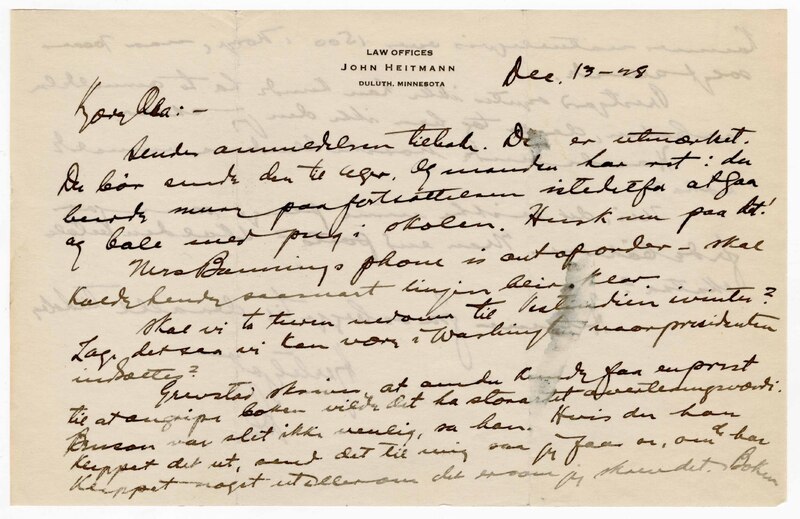 LAW OFFICES
JOHN HEITMANN
DULUTH, MINNESOTA
Dec. 13-28
Kjære Ola: -
Sender anmeldelsen tilbake. Den er utmærket.
Du bør sende den til Ager. Og manden har ret i: du
burde mure paa fortsættelsen istedetfor at gaa
og bale med på i skolen. Husk nu paa det!
Mrs Bannings phone is out of order - skal
kalde hende saasnart linjen blir klar
Skal vi ta turen nedom til Vestindien i vinter?
Lage det saa vi kan være i Washington naar presidenten
indsættes?
Grevstad skriver at om du kunde faa en prest
til at angripe boken vilde det ha stor avertissementsværdi.
Benson var slet ikke venlig, sa han. Hvis du har
klippet det ut, send det til mig saa jeg faar se, om du har
klippet noget ut eller om det er som jeg skrev det. Boken